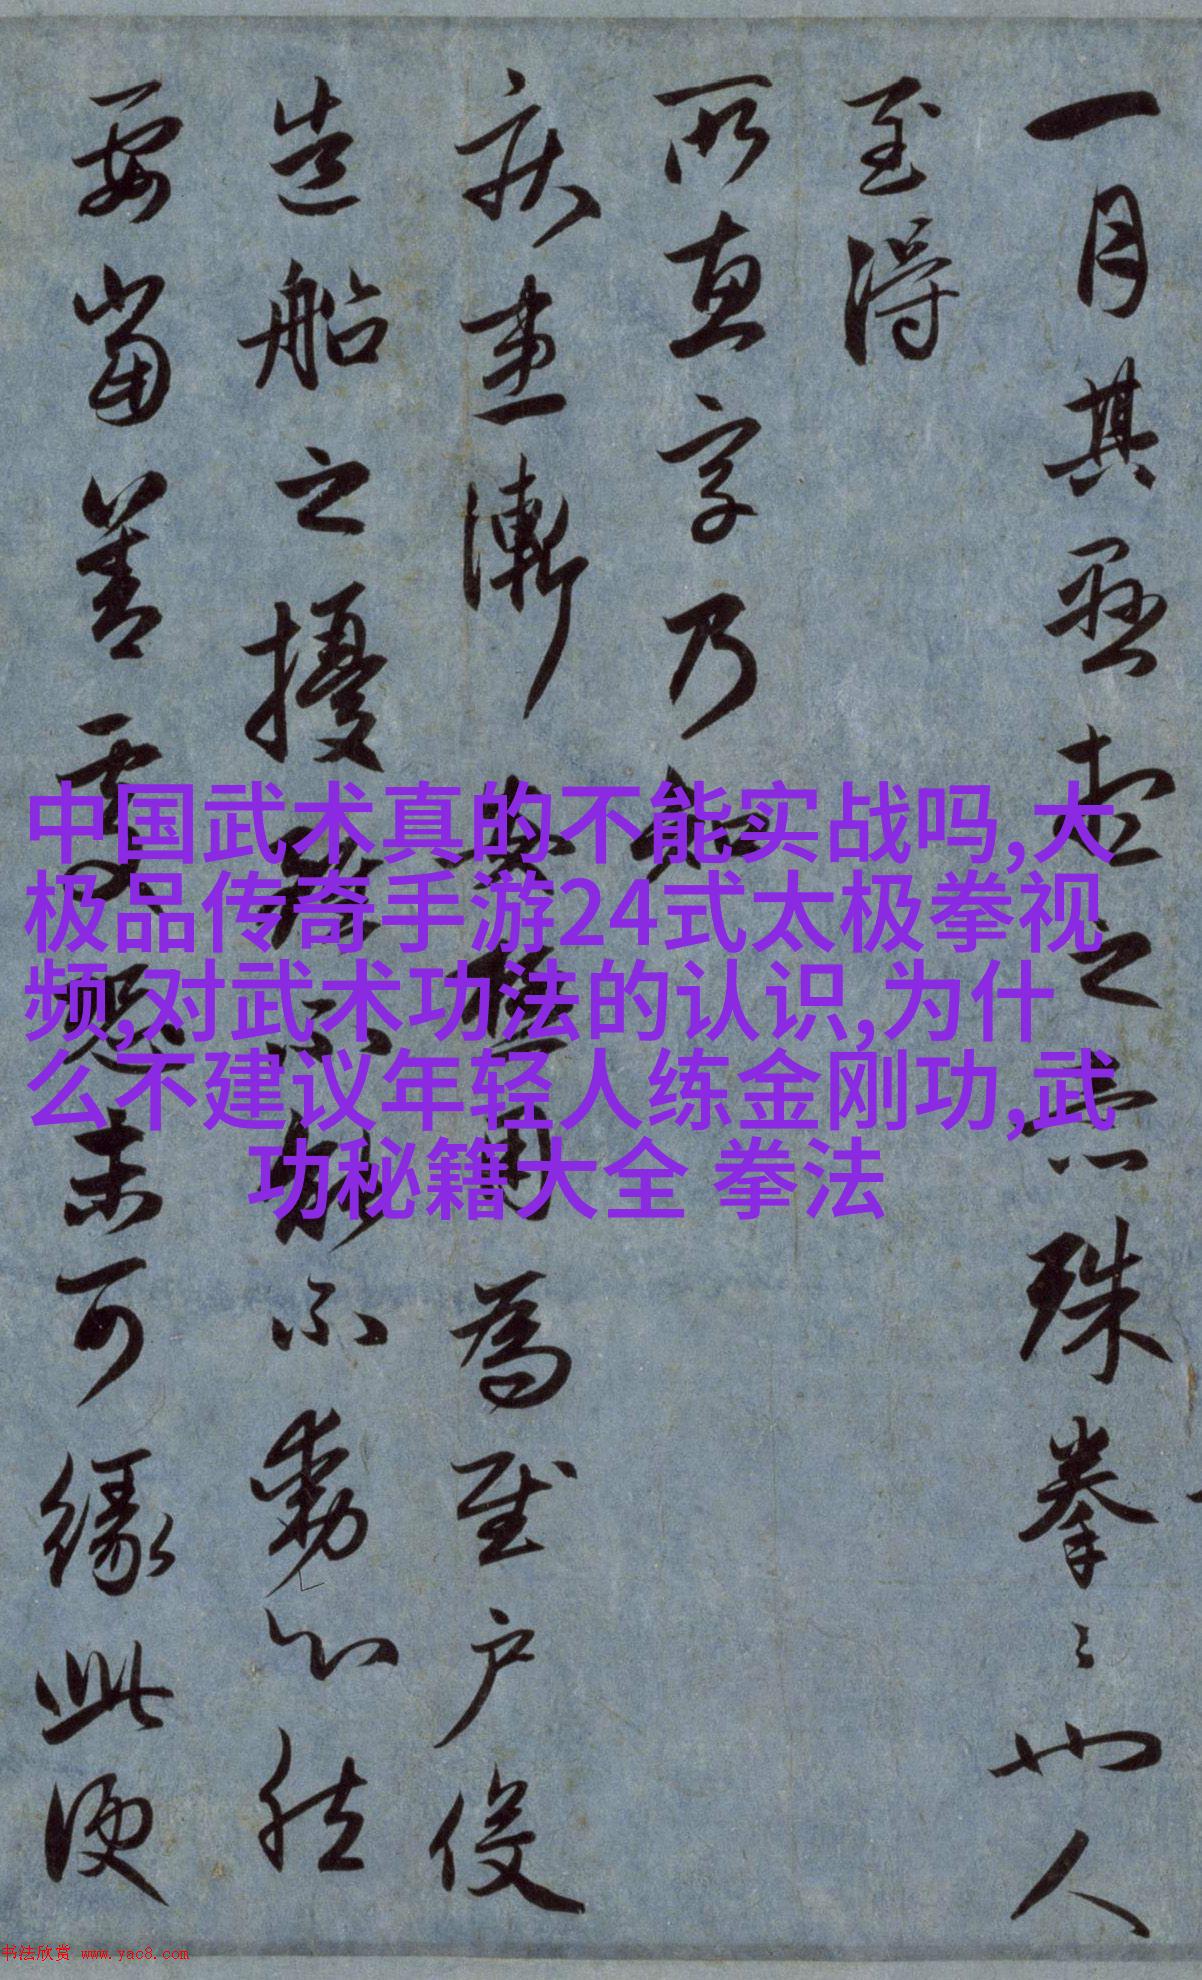 一月其孤苦之
珠拳〻也人
至得
所惠字乃知
疾患漸
用為至户役
造船之擾
不動心然
要當善
未可緣此便
中国武术真的不能实战吗,大
极品传奇手游24式太极拳视
频,对武术功法的认识,为什
么不建议年轻人练金刚功,武
功秘籍大全 拳法
书法欣赏 www.yac8.com